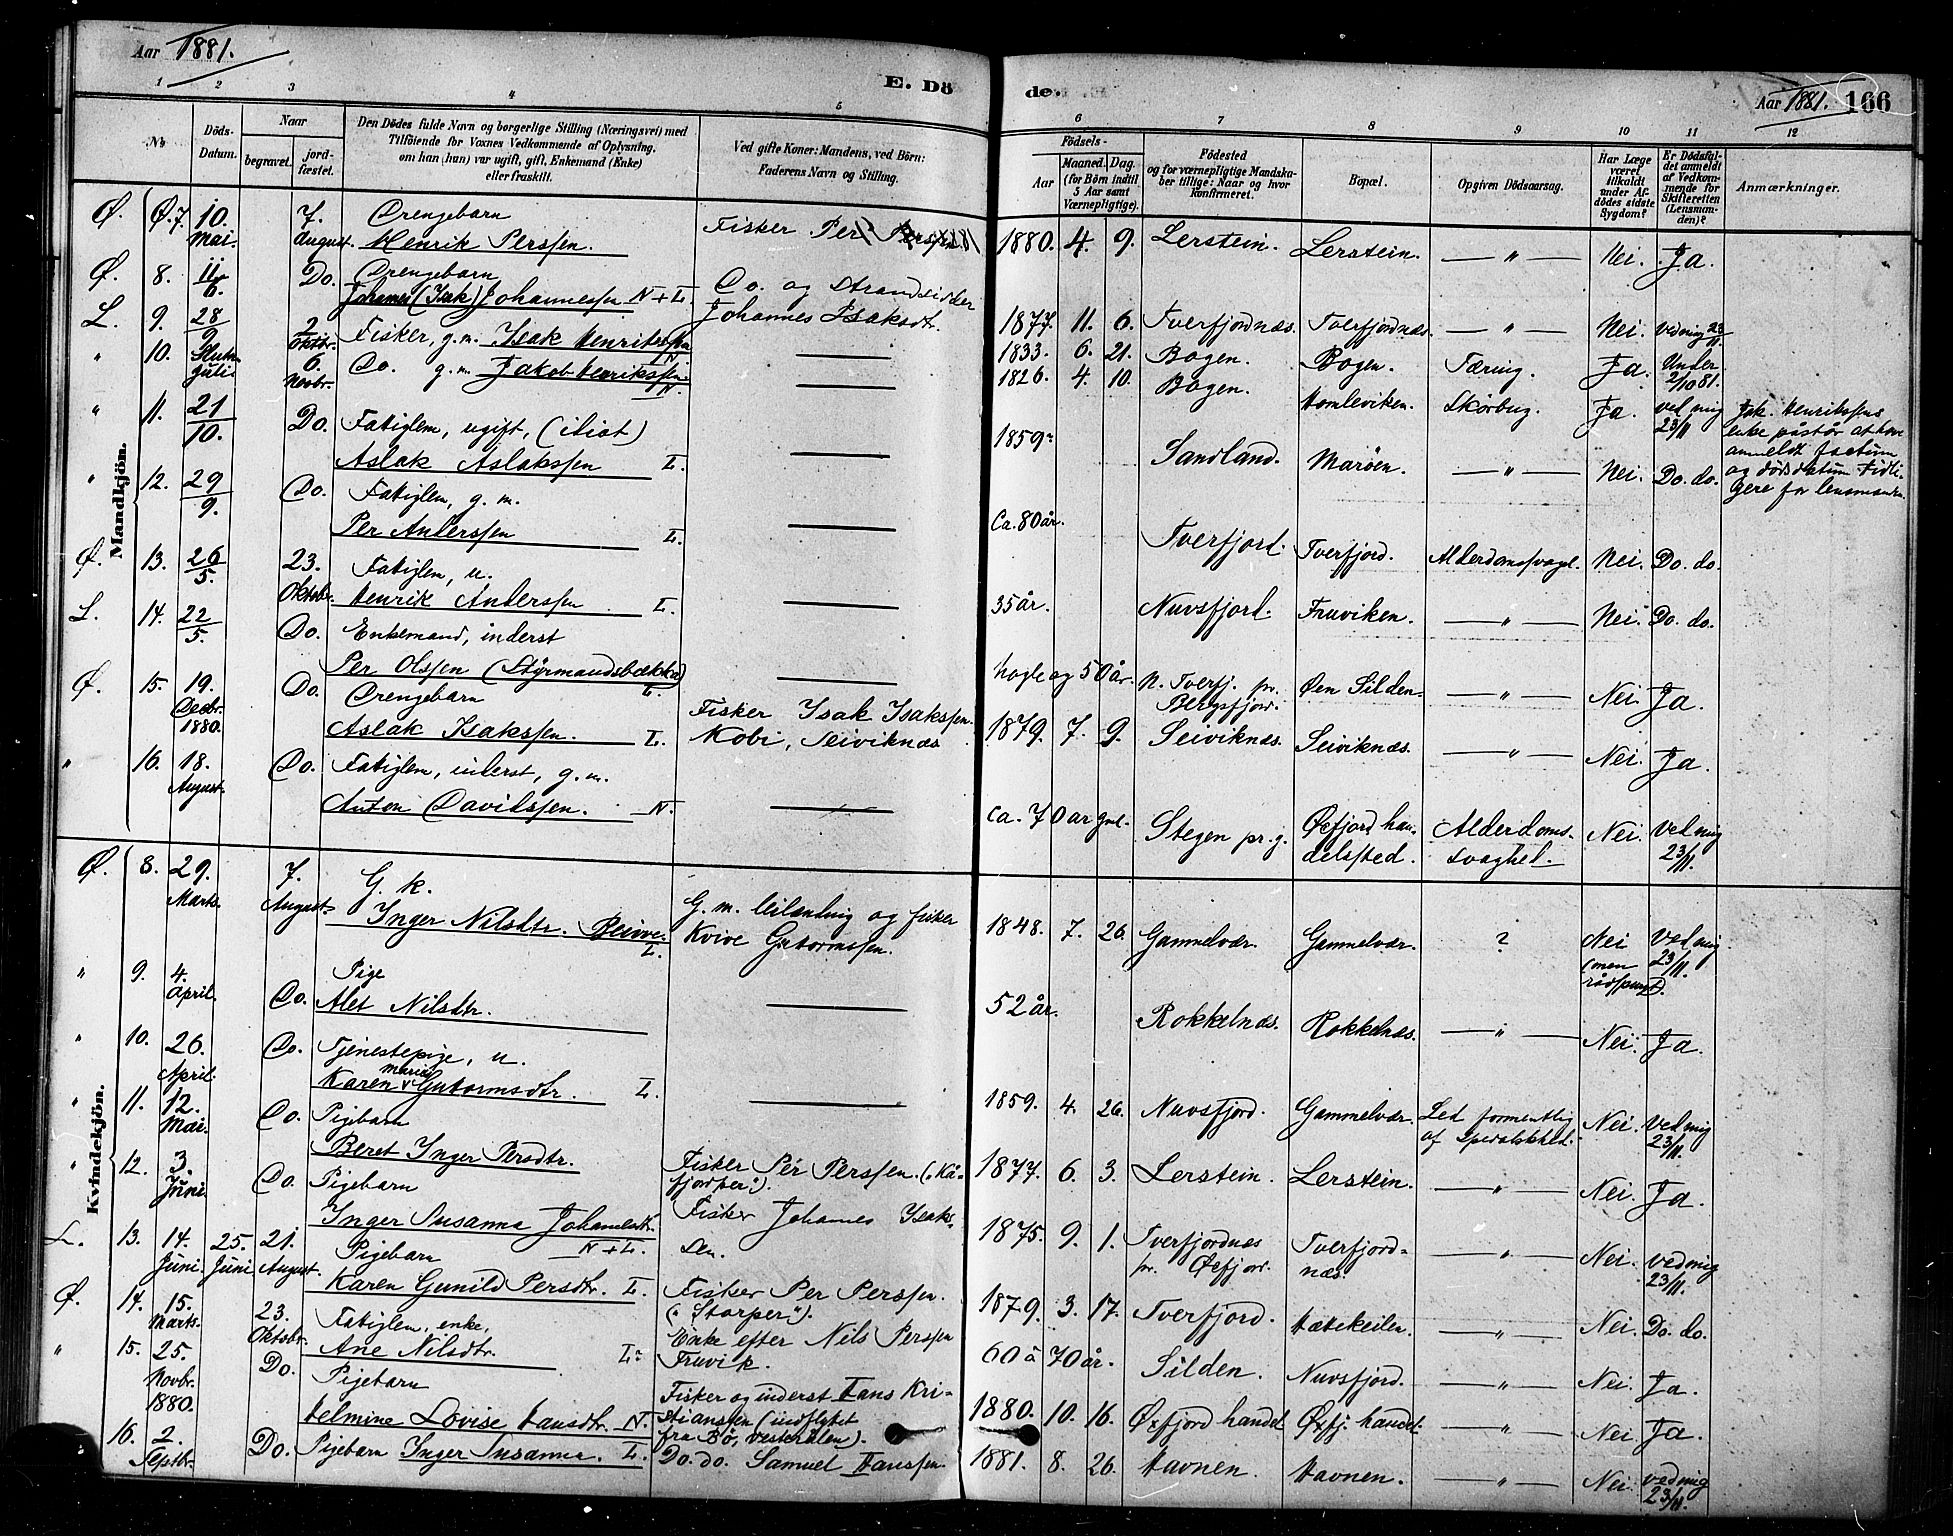 Aar 1881.
E. Dö
de.
Aar 1881. 166
1 2 3 4 5 6 7 8 9 10 11 12
No
Döds-
Datum.
Naar
begravet.
jord-
fæstet.
Den Dödes fulde Navn og borgerlige Stilling (Næringsvei) med
Tilföiende for Voxnes Vedkommende af Oplysning,
om han (hun) var ugift, gift, Enkemand (Enke)
eller fraskilt.
Ved gifte Koner: Mandens, ved Börn:
Faderens Navn og Stilling.
Födsels-
Aar
Maaned. Dag.
(for Börn indtil
5 Aar samt
Værnepligtige).
Födested
og for værnepligtige Mandska-
ber tillige: Naar og hvor
konfirmeret.
Bopæl.
Opgiven Dödsaarsag.
Har Læge
været
tilkaldt
under Af-
dödes sidste
Sygdom?
Er Dödsfal-
det anmeldt
af Vedkom-
mende for
Skifteretten
(Lensman-
den)?
Anmærkninger.
Mandkjön.
Ø. Ø. 7. 10. Mai. 7. August. Drengebarn
Henrik Perssen. Fisker Per Perssen 1880. 4. 9. Lerstein. Lerstein. — " — Nei. Ja.
Ø. 8. 11/6. Do. Drengebarn
Johannes (Isak) Johannessen N+L. Do. og Strandsidder
Johannes Isaksdt. 1877. 11. 6. Tverfjordnæs. Tverfjordnæs. — " — Nei. ved mig 23/11.
L. 9. 28/9 2 Oktbr. Fisker, g.m. Isak Henrikssen N. — 1833. 6. 21. Bogen. Bogen. Tæring. Ja. Under 2/10 81.
" 10. Slutn. Juli 6. Novbr. Do. g.m. Jakob Henrikssen. N. — 1826. 4. 10. Bogen. Homleviken. Skörbug. Ja. ved mig 23/11 Jak. Henrikssens
enke påstår at have
anmeldt factum
og dödsdatum tidli-
gere for lensmanden.
" 11. 21/10. Do. Fatiglem, ugift, (idiot)
Aslak Aslakssen L. — 1859. Sandland. Marøen. — " — Nei. Do. do.
" 12. 29/9. Do. Fatiglem, g. m.
Per Anderssen L. — Ca. 80 år. Tverfjord. Tverfjord. Alderdomssvagh. Nei. Do. do.
Ø. 13. 26/5. 23. Oktobr. Fatiglem, u.
Henrik Anderssen L. — 35 år. Nuvsfjord. Fruviken. — " — Nei. Do. do.
L. 14. 22/5. Do. Enkemand, inderst
Per Olssen (Styrmandsbækka) L. — Nogle og 50 år. N. Tverfj. pr.
Bergsfjor. Øen Silden. — " — Nei. Ja.
Ø. 15. 19. Decbr. 1880. Do. Drengebarn
Aslak Isakssen. L. Fisker Isak Isakssen
Kobi, Seiviknæs 1879. 7. 9. Seiviknæs. Seiviknæs. — " — Nei. Ja.
" 16. 18. August. Do. Fatiglem, inderst, g. m.
Anton Davidssen. N. — ca. 70 år gml. Stegen pr. g. Øxfjord han-
delssted. Alderdoms-
svaghed. Nei. ved mig 23/11.
Kvindekjön.
Ø. 8. 29. Marts. 7. August. G. k.
Inger Nilsdtr. Beivve. L. G. m. leilænding og fisker
Kvive Guttormssen. 1848. 7. 26. Gammelvær. Gammelvær. ? Nei (men rådspurgt). ved mig 23/11.
" 9. 4. April. Do. Pige
Alet Nilsdtr. — 52 år. Rokkelnæs. Rokkelnæs. — " — Nei. Ja.
" 10. 26. April. Do. Tjenestepige, u.
Karen Marie Gutormsdtr. L. — 1859. 4. 26. Nuvsfjord. Gammelvær. Led formentlig
af Spedalskhed. Nei. ved mig 23/11.
" 11. 12. Mai. Do. Pigebarn
Beret Inger Persdtr. Fisker Per Perssen. ("Kå-
fjorper"). 1877. 6. 3. Lerstein. Lerstein. — " — Nei. Ja.
" 12. 3. Juni Do. Pigebarn
Inger Susanna Johannesdtr. N+L. Fisker Johannes Isak-
sen. 1875. 9. 1. Tverfjordnæs
pr. Øxfjor. Tverfjord-
næs. — " — Nei. ved mig 23/11.
L. 13. 14. Juni. 25. Juni 21. August. Pigebarn
Karen Gunild Persdtr. L. Fisker Per Perssen.
("Storper"). 1879. 3. 17. Tverfjord. Hættekeilen. — " — Nei. Do. do.
Ø. 14. 15. Marts. 23. Oktobr. Fatiglem, enke,
Ane Nilsdtr. L. Enke efter Nils Perssen
Fruvik. 60 à 70 år. Silden. Nuvsfjord. — " — Nei. Ja.
" 15. 25. Novbr. 1880. Do. Pigebarn
Helmine Lovise Hansdtr. N. Fisker og inderst Hans Kri-
stianssen (indflyttet
fra Bö, Vesterålen). 1880. 10. 16. Øxfjord handel. Øxfj. handel. — " — Nei Ja.
16. 2. Septbr. Do. Pigebarn Inger Susanna. L. Do. do. Samuel Hanssen. 1881. 8. 26. Havnen. Havnen. — " — Nei. ved mig 23/11.